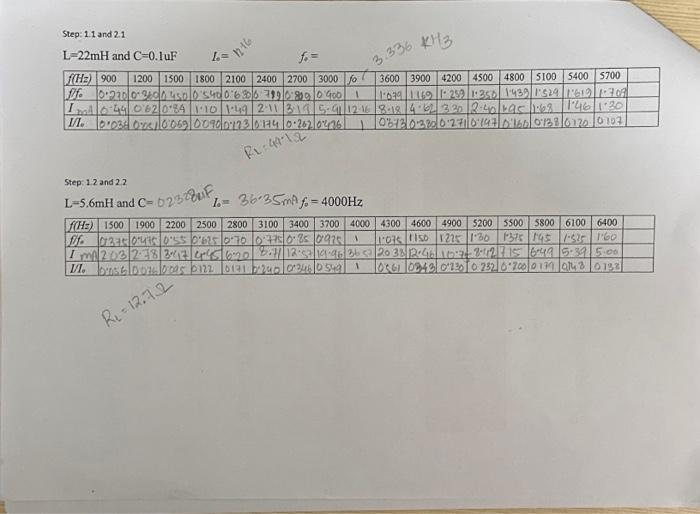 Step: 1.1 and 2.1
L=22mH and C=0.1uF I₀= 12.16 f₀= 3.336 KHz
f(Hz) 900 1200 1500 1800 2100 2400 2700 3000 fo 3600 3900 4200 4500 4800 5100 5400 5700
f/f₀ 0.270 0.360 0.450 0.540 0.630 0.719 0.809 0.900 1 1.079 1.169 1.259 1.350 1.439 1.529 1.619 1.709
I mA 0.44 0.62 0.84 1.10 1.49 2.11 3.19 5.91 12.16 8.18 4.62 3.30 2.40 1.95 1.68 1.46 1.30
I/I₀ 0.036 0.051 0.069 0.090 0.123 0.174 0.262 0.486 1 0.673 0.380 0.271 0.197 0.160 0.138 0.120 0.107
RL=49.1Ω
Step: 1.2 and 2.2
L=5.6mH and C= 0.2328uF I₀= 36.35mA f₀ = 4000Hz
f(Hz) 1500 1900 2200 2500 2800 3100 3400 3700 4000 4300 4600 4900 5200 5500 5800 6100 6400
f/f₀ 0.375 0.475 0.55 0.625 0.70 0.775 0.85 0.925 1 1.075 1.150 1.225 1.30 1.375 1.45 1.525 1.60
I mA 2.03 2.78 3.47 4.45 6.20 8.71 12.57 19.96 20.38 12.46 8.42 7.15 6.49 5.39 5.00
I/I₀ 0.056 0.076 0.095 0.122 0.171 0.240 0.346 0.549 1 0.561 0.343 0.230 0.232 0.200 0.179 0.148 0.138
RL=12.7Ω